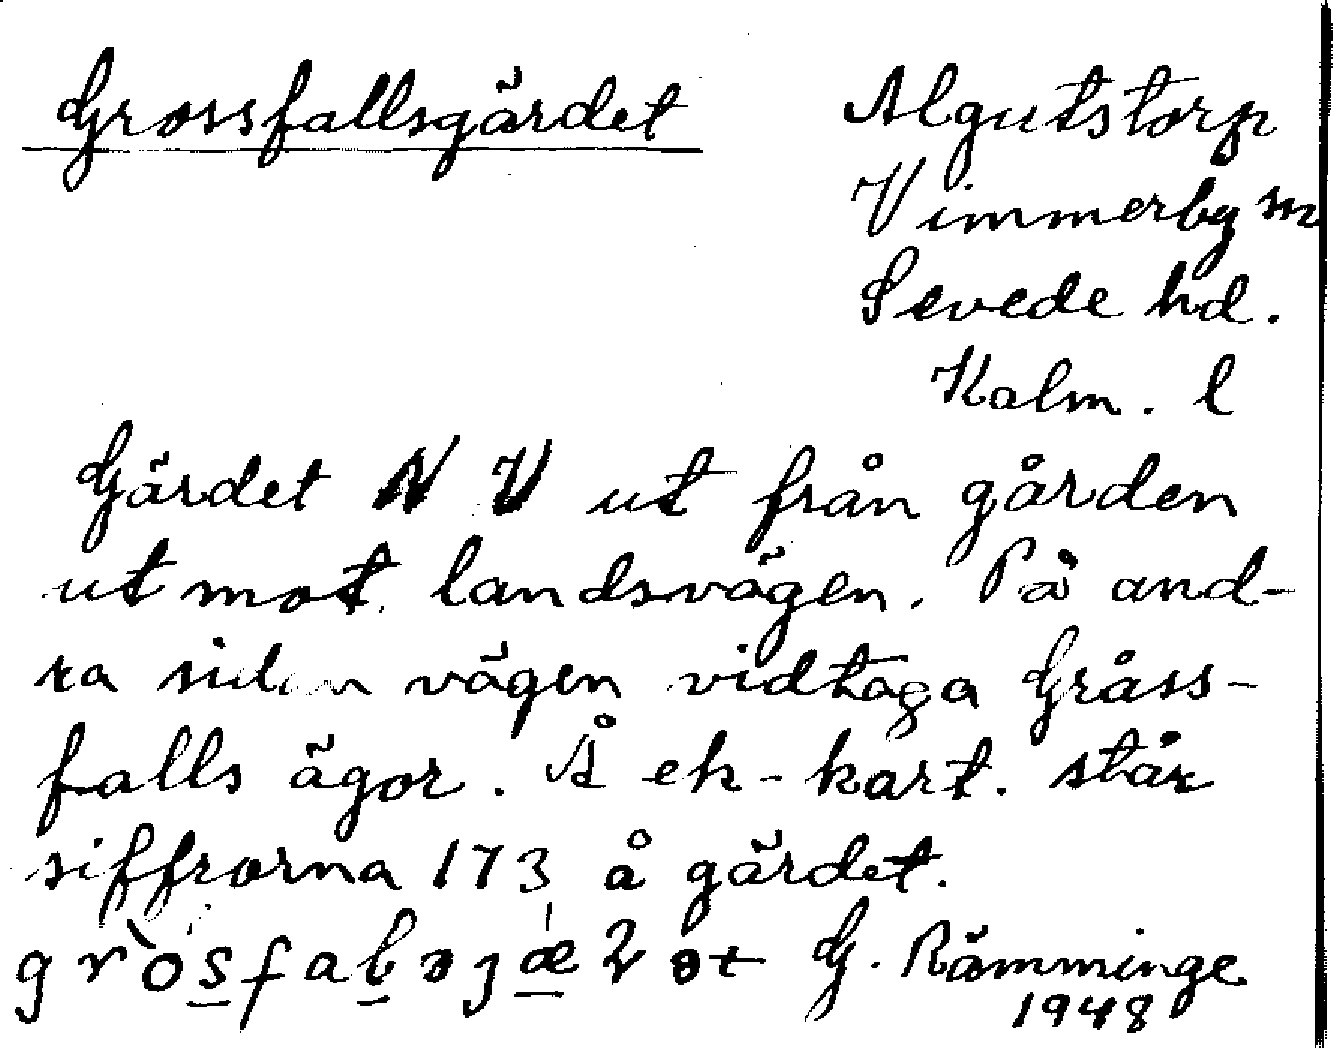 Grossfallsgärdet
Algutstorp
Vimmerby sn
Sevede hd.
Kalm. l
Gärdet N V ut från gården
ut mot landsvägen. På and-
ra sidan vägen vidtaga Gråss-
falls ägor. Å ek-kart. står
siffrorna 173 å gärdet.
G. Rämminge
1948